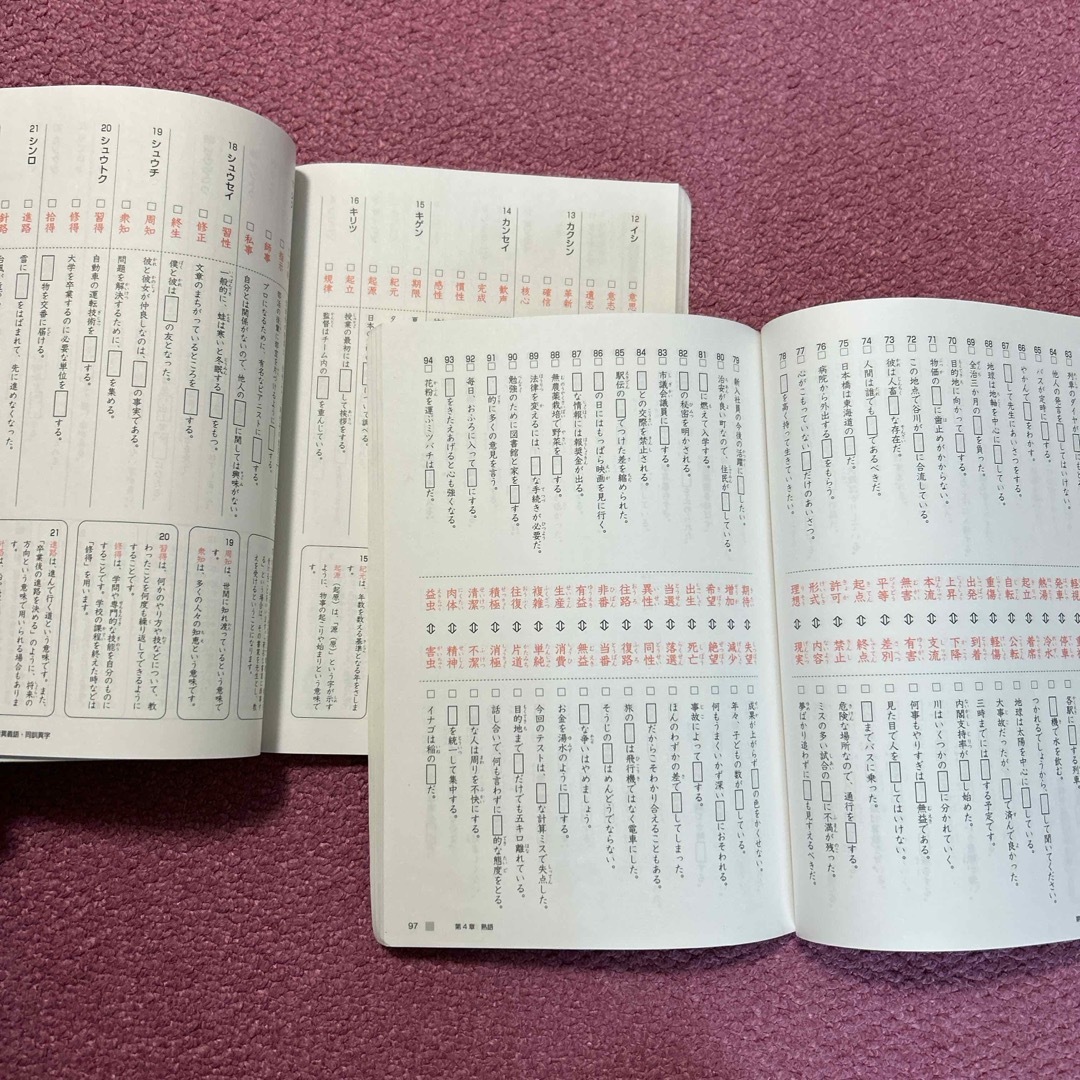 12 イシ
□ 意思
□ 意志
□ 遺志
13 カクシン
□ 革新
□ 確信
□ 核心
14 カンセイ
□ 歓声
□ 完成
□ 慣性
□ 感性
15 キゲン
□ 期限
□ 紀元
□ 起源
16 キリツ
□ 起立
授業の最初には□して挨拶をする。
□ 規律
監督はチームの□を重んじている。
15
紀元は、年数を数える基準となる年をさします。
起源(起原)は、「源(原)」という字が示すように、物事の起こりや始まりという意味です。
□ 師事
プロになるために、有名なピアニストに□する。
□ 私事
自分とは関係がないので、他人の□に関しては興味がない。
18 シュウセイ
□ 習性
一般的に、蛙は寒いと冬眠する□をもつ。
□ 修正
文章のまちがっているところを□する。
□ 終生
僕と彼は□の友となった。
19 シュウチ
□ 周知
彼と彼女が仲良しなのは、□の事実である。
□ 衆知
問題を解決するために、□を集める。
20 シュウトク
□ 習得
自動車の運転技術を□する。
□ 修得
大学を卒業するのに必要な単位を□する。
□ 拾得
□物を交番に届ける。
21 シンロ
□ 進路
雪に□をはばまれて、先に進めなくなった。
□ 針路
19
周知は、世間に知れ渡っているという意味です。
衆知は、多くの人々の知恵という意味です。
20
習得は、何かのやり方や技などについて、教わったことを何度も繰り返してできるようにすることです。
修得は、学問や専門的な技能を自分のものにすることです。学校の課程を終えた時などは「修得」を用います。
21
進路は、進んで行く道という意味です。また、「卒業後の進路を決める」のように、将来の方向という意味で用いられる場合もあります。
異義語・同訓異字
67 □して先生にあいさつをする。
68 地球は地軸を中心に□している。
69 全治三か月の□を負った。
70 目的地に向かって□する。
71 物価の□に歯止めがかからない。
72 この地点で谷川が□に合流している。
73 彼は人畜□な存在だ。
74 人間は誰でも□であるべきだ。
75 日本橋は東海道の□だ。
76 病院から外出する□をもらう。
77 心がこもっていない□だけのあいさつ。
78 □を高く持って生きていきたい。
発車 ⇔ 停車
熱湯 ⇔ 冷水
起立 ⇔ 着席
自転 ⇔ 公転
重傷 ⇔ 軽傷
出発 ⇔ 到着
上昇 ⇔ 下降
本流 ⇔ 支流
無害 ⇔ 有害
平等 ⇔ 差別
起点 ⇔ 終点
許可 ⇔ 禁止
形式 ⇔ 内容
理想 ⇔ 現実
□ 各駅に□する列車。
□ □機で水を飲む。
□ つかれるでしょうから、□して聞いてください。
□ 地球は太陽を中心に□している。
□ 大事故だったが、□で済んで良かった。
□ 三時までには□する予定です。
□ 内閣支持率が□し始めた。
□ 川はいくつかの□に分かれていく。
□ 何事もやりすぎは□無益である。
□ 見た目で人を□してはいけない。
□ □までバスに乗った。
□ 危険な場所なので、通行を□する。
□ ミスの多い試合の□に不満が残った。
□ 夢ばかり追わずに□も見すえるべきだ。
79 新入社員の今後の活躍に□したい。
80 治安が良い町なので、住民が□する。
81 □に燃えて入学する。
82 □の秘密を明かされる。
83 市議会議員に□する。
84 □との交際を禁止される。
85 駅伝の□でつけた差を縮められた。
86 □の日にはもっぱら映画を見に行く。
87 □な情報には報奨金が出る。
88 無農薬栽培で野菜を□する。
89 法律を変えるには、□な手続きが必要だ。
90 勉強のために図書館と家を□する。
91 □的に多くの意見を言う。
92 毎日、おふろに入って□にする。
93 □をきたえあげると心も強くなる。
94 花粉を運ぶミツバチは□だ。
期待 ⇔ 失望
増加 ⇔ 減少
希望 ⇔ 絶望
出生 ⇔ 死亡
当選 ⇔ 落選
異性 ⇔ 同性
往路 ⇔ 復路
非番 ⇔ 当番
有益 ⇔ 無益
生産 ⇔ 消費
複雑 ⇔ 単純
往復 ⇔ 片道
積極 ⇔ 消極
清潔 ⇔ 不潔
肉体 ⇔ 精神
益虫 ⇔ 害虫
□ 成果が上がらず□の色をかくせない。
□ 年々、子どもの数が□している。
□ 何もうまくいかず深い□におそわれる。
□ 事故によって□する。
□ ほんのわずかの差で□してしまった。
□ □だからこそわかり合えることもある。
□ 旅の□は飛行機ではなく電車にした。
□ そうじの□はめんどうでならない。
□ □な争いはやめましょう。
□ お金を湯水のように□する。
□ 今回のテストは、□な計算ミスで失点した。
□ 目的地まで□だけでも五キロ離れている。
□ 話し合いで、何も言わずに□的な態度をとる。
□ □な人は周りを不快にする。
□ □を統一して集中する。
□ イナゴは稲の□だ。
97 第4章 熟語